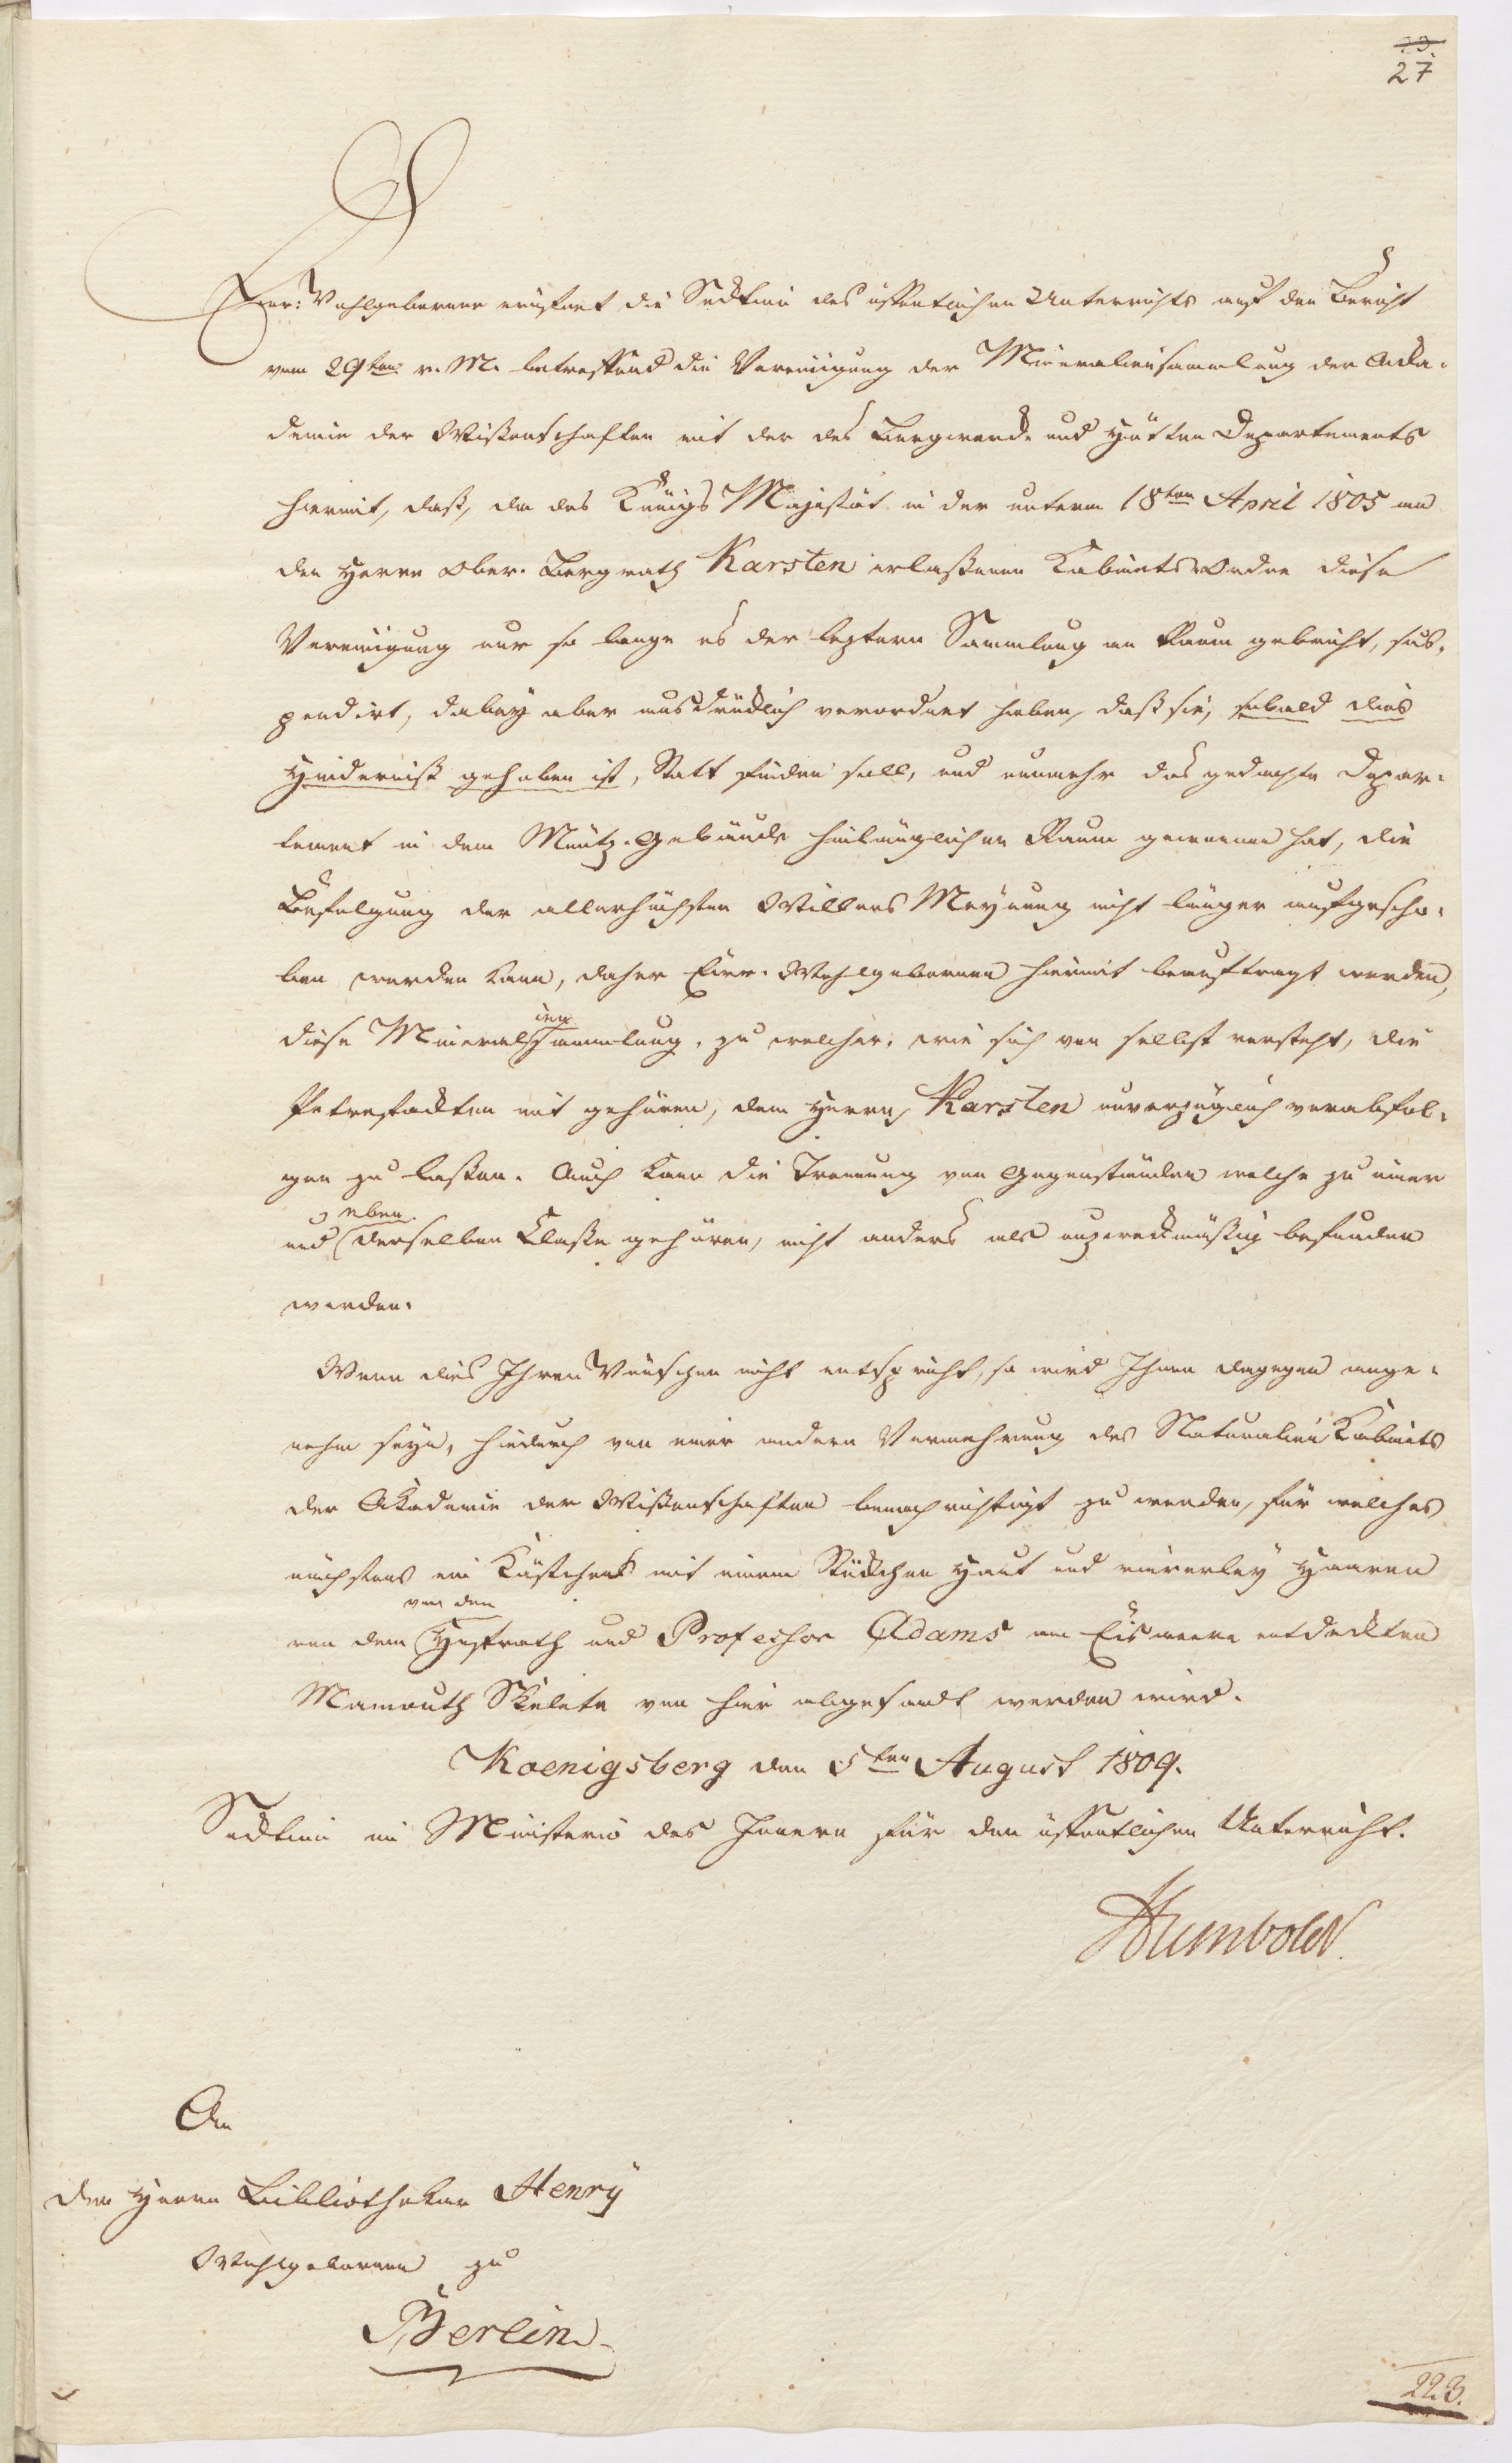 27
Ewr: Wohlgebornen eröfnet die Secktion des öffentlichen Unterrichts auf den Bericht
vom 29ten v. M. betreffend die Vereinigung der Mineraliensammlung der Acka-
demie der Wißenschaften mit der des Bergwercks und Hütten Departements
hiermit, daß, da des Königs Majestät in der unterm 18ten April 1805 an
den Herrn Ober-Bergrath Karsten erlaßenen Kabinets Ordre diese
Vereinigung nur so lange es der leztern Sammlung an Raum gebricht, sus-
pendirt, dabey aber ausdrücklich verordnet haben, daß sie, sobald dies
Hinderniß gehoben ist, Statt finden soll, und nunmehr das gedachte Depar-
tement in dem Müntz-Gebäude hinlänglichen Raum gewonnen hat, die
Befolgung der allerhöchsten Willens Meynung nicht länger aufgescho-
ben werden kann, daher Eur. Wohlgebornen hiermit beauftragt werden,
diese Mineraliensammlung, zu welcher, wie sich von selbst versteht, die
Petrefackten mit gehören, dem Herrn Karsten unverzüglich verabfol-
gen zu laßen. Auch kann die Trennung von Gegenständen welche zu einer
und eben derselben Claße gehören, nicht anders als unzweckmäßig befunden
werden.
Wenn dies Ihren Wünschen nicht entspricht, so wird Ihnen dagegen ange-
nehm seyn, hiedurch von einer andern Vermehrung des Naturalien Kabinets
der Akademie der Wißenschaften benachrichtigt zu werden, für welches
nächstens ein Kästchen mit einem Stückchen Haut und viererley Haaren
von dem von dem Hofrath und Professor Adams am Eismeere entdeckten
Mamouth Skelete von hier abgesandt werden wird.
Koenigsberg den 5ten August 1809.
Secktion im Ministerio des Innern für den öffentlichen Unterricht.
Humboldt.
An
den Herrn Bibliothekar Henry
Wohlgebornen zu
Berlin
223.